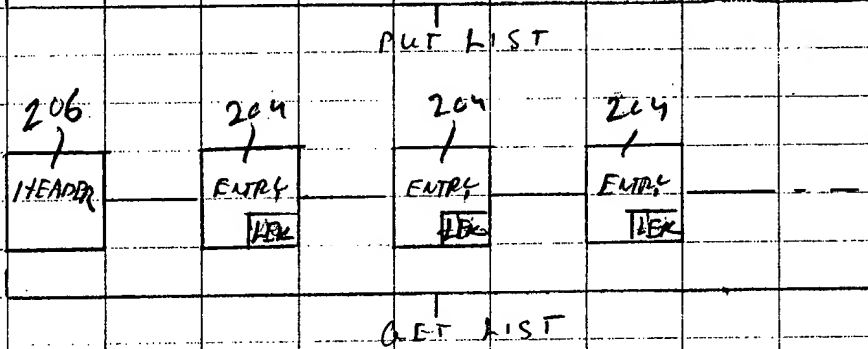 PUT LIST
206 204 204 204
HEADER ENTRY ENTRY ENTRY
GET LIST